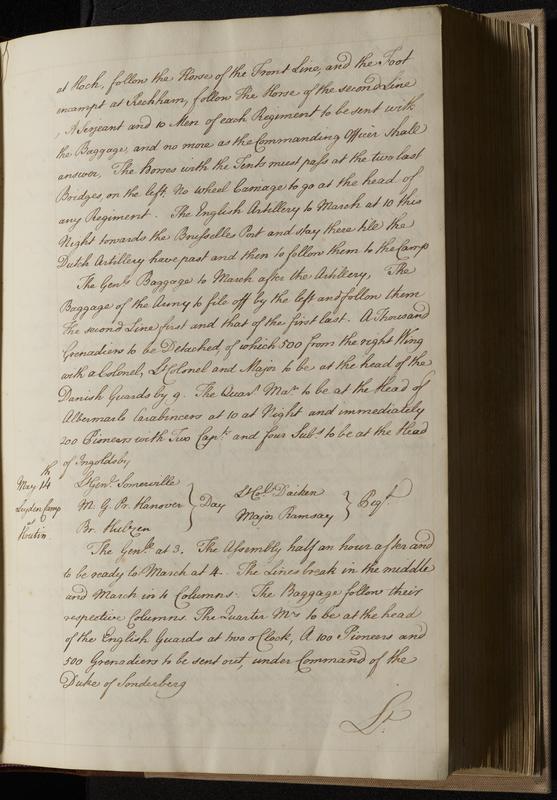 at Hock, follow the Horse of the Front Line, and the Foot
encampt at Reckham, follow the Horse of the second Line
, A Serjeant and 10 Men of each Regiment to be sent with
the Baggage, and no more as the Commanding Officer shall
answer, The Horses with the Tents must pass at the two last
Bridges, on the left, No wheel Carriage to go at the head of
any Regiment. The English Artillery to March at 10 this
Night towards the Brusselles Port and stay there till the
Dutch Artillery have past and then to follow them to the Camp
The Genls. Baggage to March after the Artillery, The
Baggage of the Army to file off by the left and follow them
the second Line first and that of the first last. A Thousand
Grenadiers to be Detached, of which 500 from the right Wing
with a Colonel, Lt Colonel and Major to be at the head of the
Danish Guards by 9. The Quar. Mar. to be at the Head of
Albermarle Carabineers at 10 at Night and immediately
200 Pioneers with Two Capts. and four Subs. to be at the Head
of Ingoldsby
May 14th
Leyden Camp
at
Lt Genl. Somerville
M. G. Pr. Hanover
Br.
Day
Lt Col.
Major Ramsay
Piqt.
The Genle. at 3. The Assembly half an hour after and
to be ready to March at 4. The Lines break in the middle
and March in 4 Columns. The Baggage follow their
respective Columns. The Quarter Mrs. to be at the head
of the English Guards at two o'Clock, A 100 Pioneers and
500 Grenadiers to be sent out, under Command of the
Duke of Sonderberg
Lt.